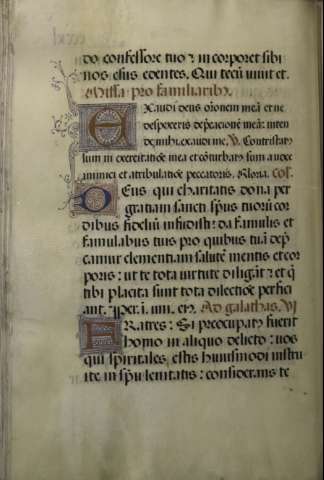 do confessore tuo ⁊ in corporet sibi
nos eius edentes. Qui tecũ vivit et.
Missa pro familiaribꝫ.
Exaudi deus oronem meã et ne
despexeris deprecationẽ meã: inten
de mihi, exaudi me. V. Contristatꝰ
sum in exercitatiõe mea et cõturbatꝰ sum a voce
inimici et a tribulatiõe peccatoris. Gloria.
Deus qui charitatis dona per
gratiam sancti spũs tuorũ cor
dibus fideliũ infudisti: da famulis et
famulabus tuis pro quibus tuã dep̃
camur clementiam salutẽ mentis et cor
poris: ut te tota virtute diligãt: et q̃
tibi placita sunt tota dilectiõe perfici
ant. Per. Ad galathas. VI
Fratres: Si preocupatꝰ fuerit
homo in aliquo delicto: vos
qui spirituales, estis huiusmodi instru
ite in spũ lenitatis: considerans te